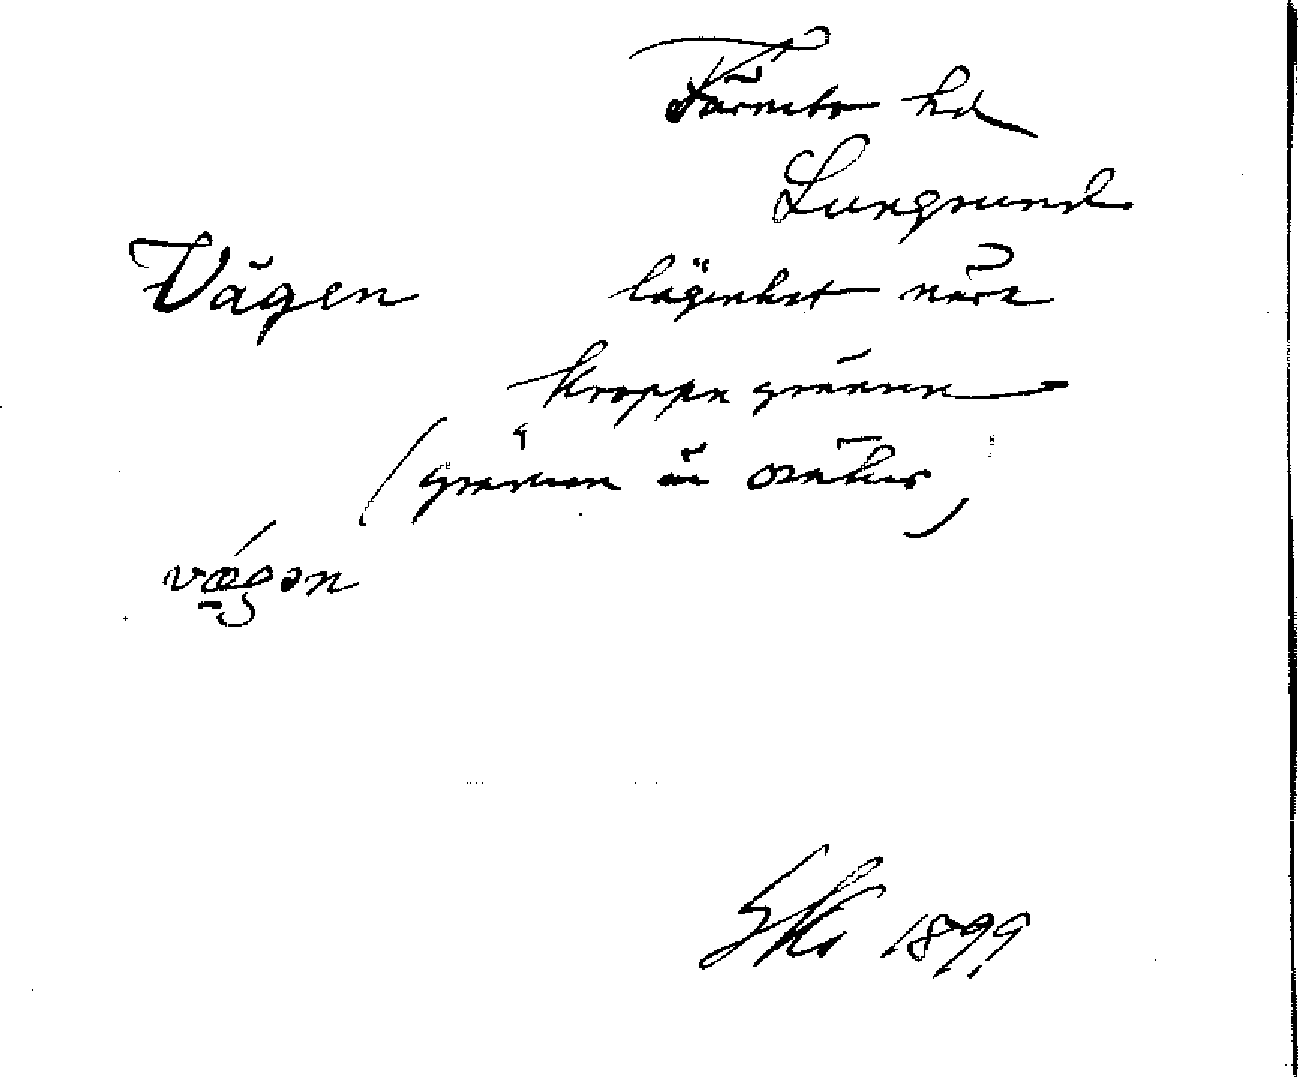 Färnebo hd
Lungsund
Vägen lägenhet nära
Kroppa gränsen
(gränsen är osäker)
vægən
1899